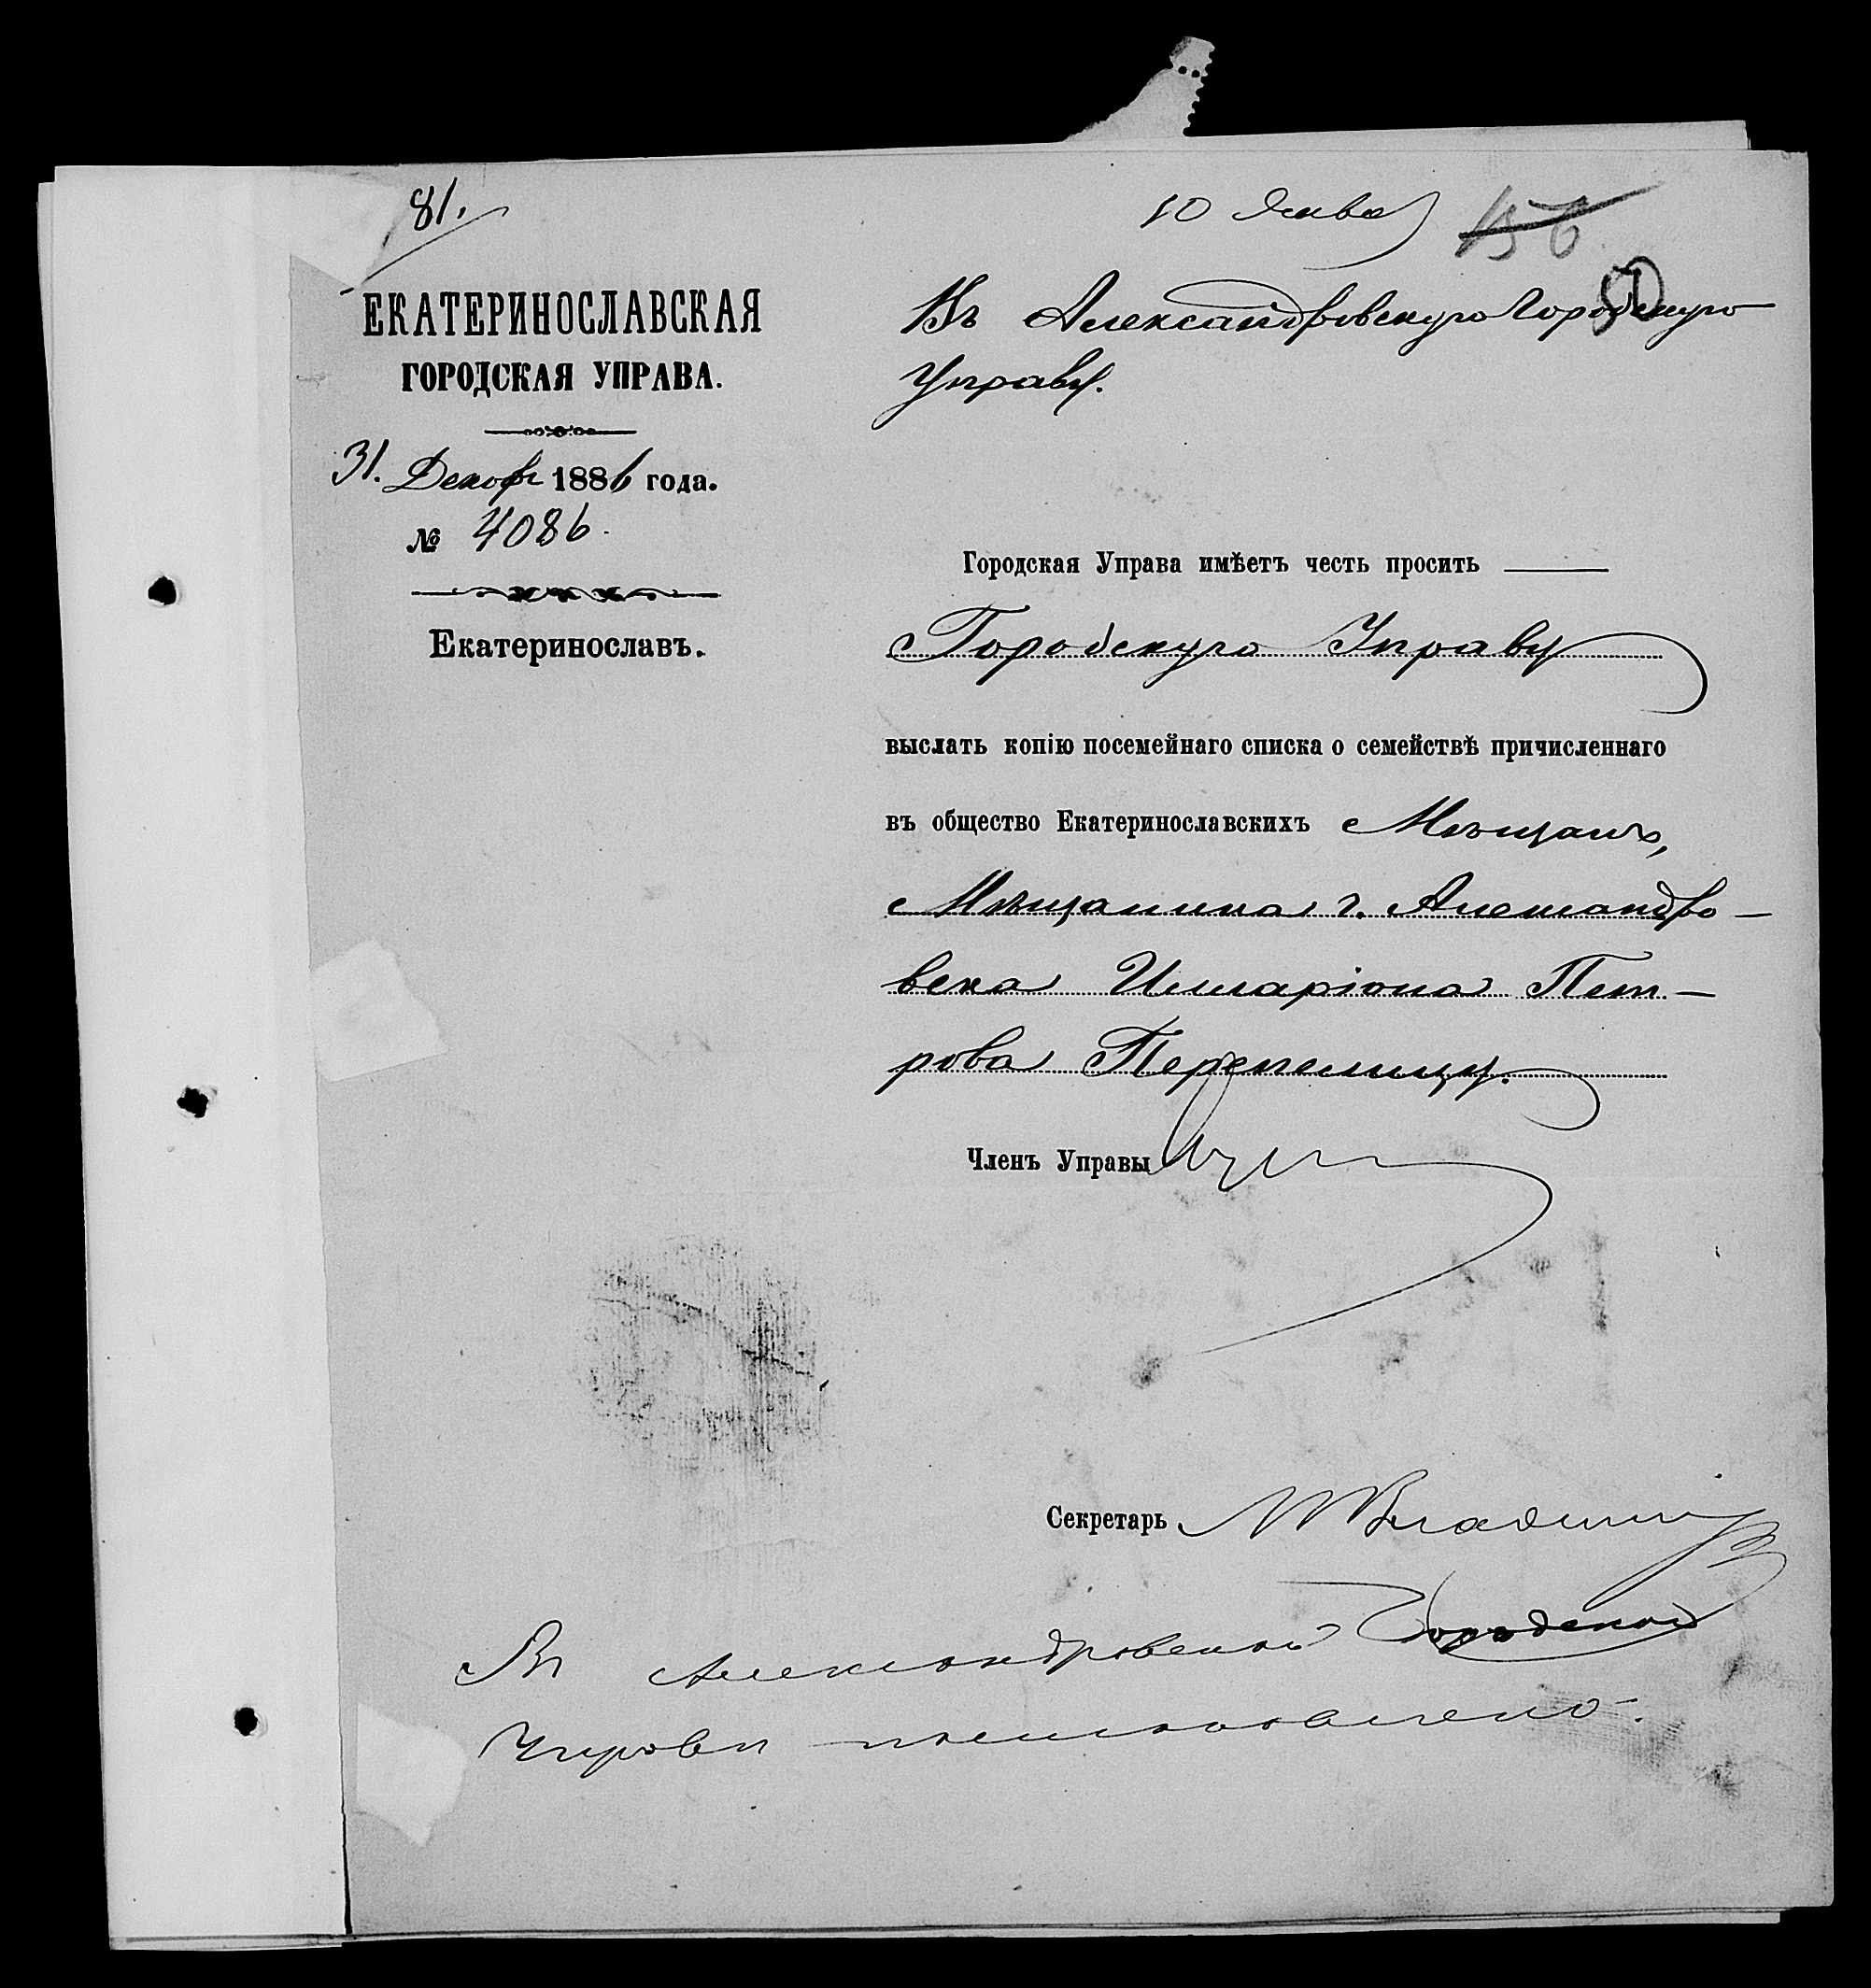 81.
10 Янва
156
50
ЕКАТЕРИНОСЛАВСКАЯ
ГОРОДСКАЯ УПРАВА.
31. Декабр 1886 года.
№ 4086.
Екатеринославъ.
Въ Александровскую Городскую
Управу.
Городская Управа имѣетъ честь просить
Городскую Управу
выслать копію посемейнаго списка о семействѣ причисленнаго
въ общество Екатеринославскихъ Мѣщанъ,
Мѣщанина г. Александро-
вска Илларіона Пет-
рова Перепелицу.
Членъ Управы
Секретарь
Въ Александровской Городской
Управѣ